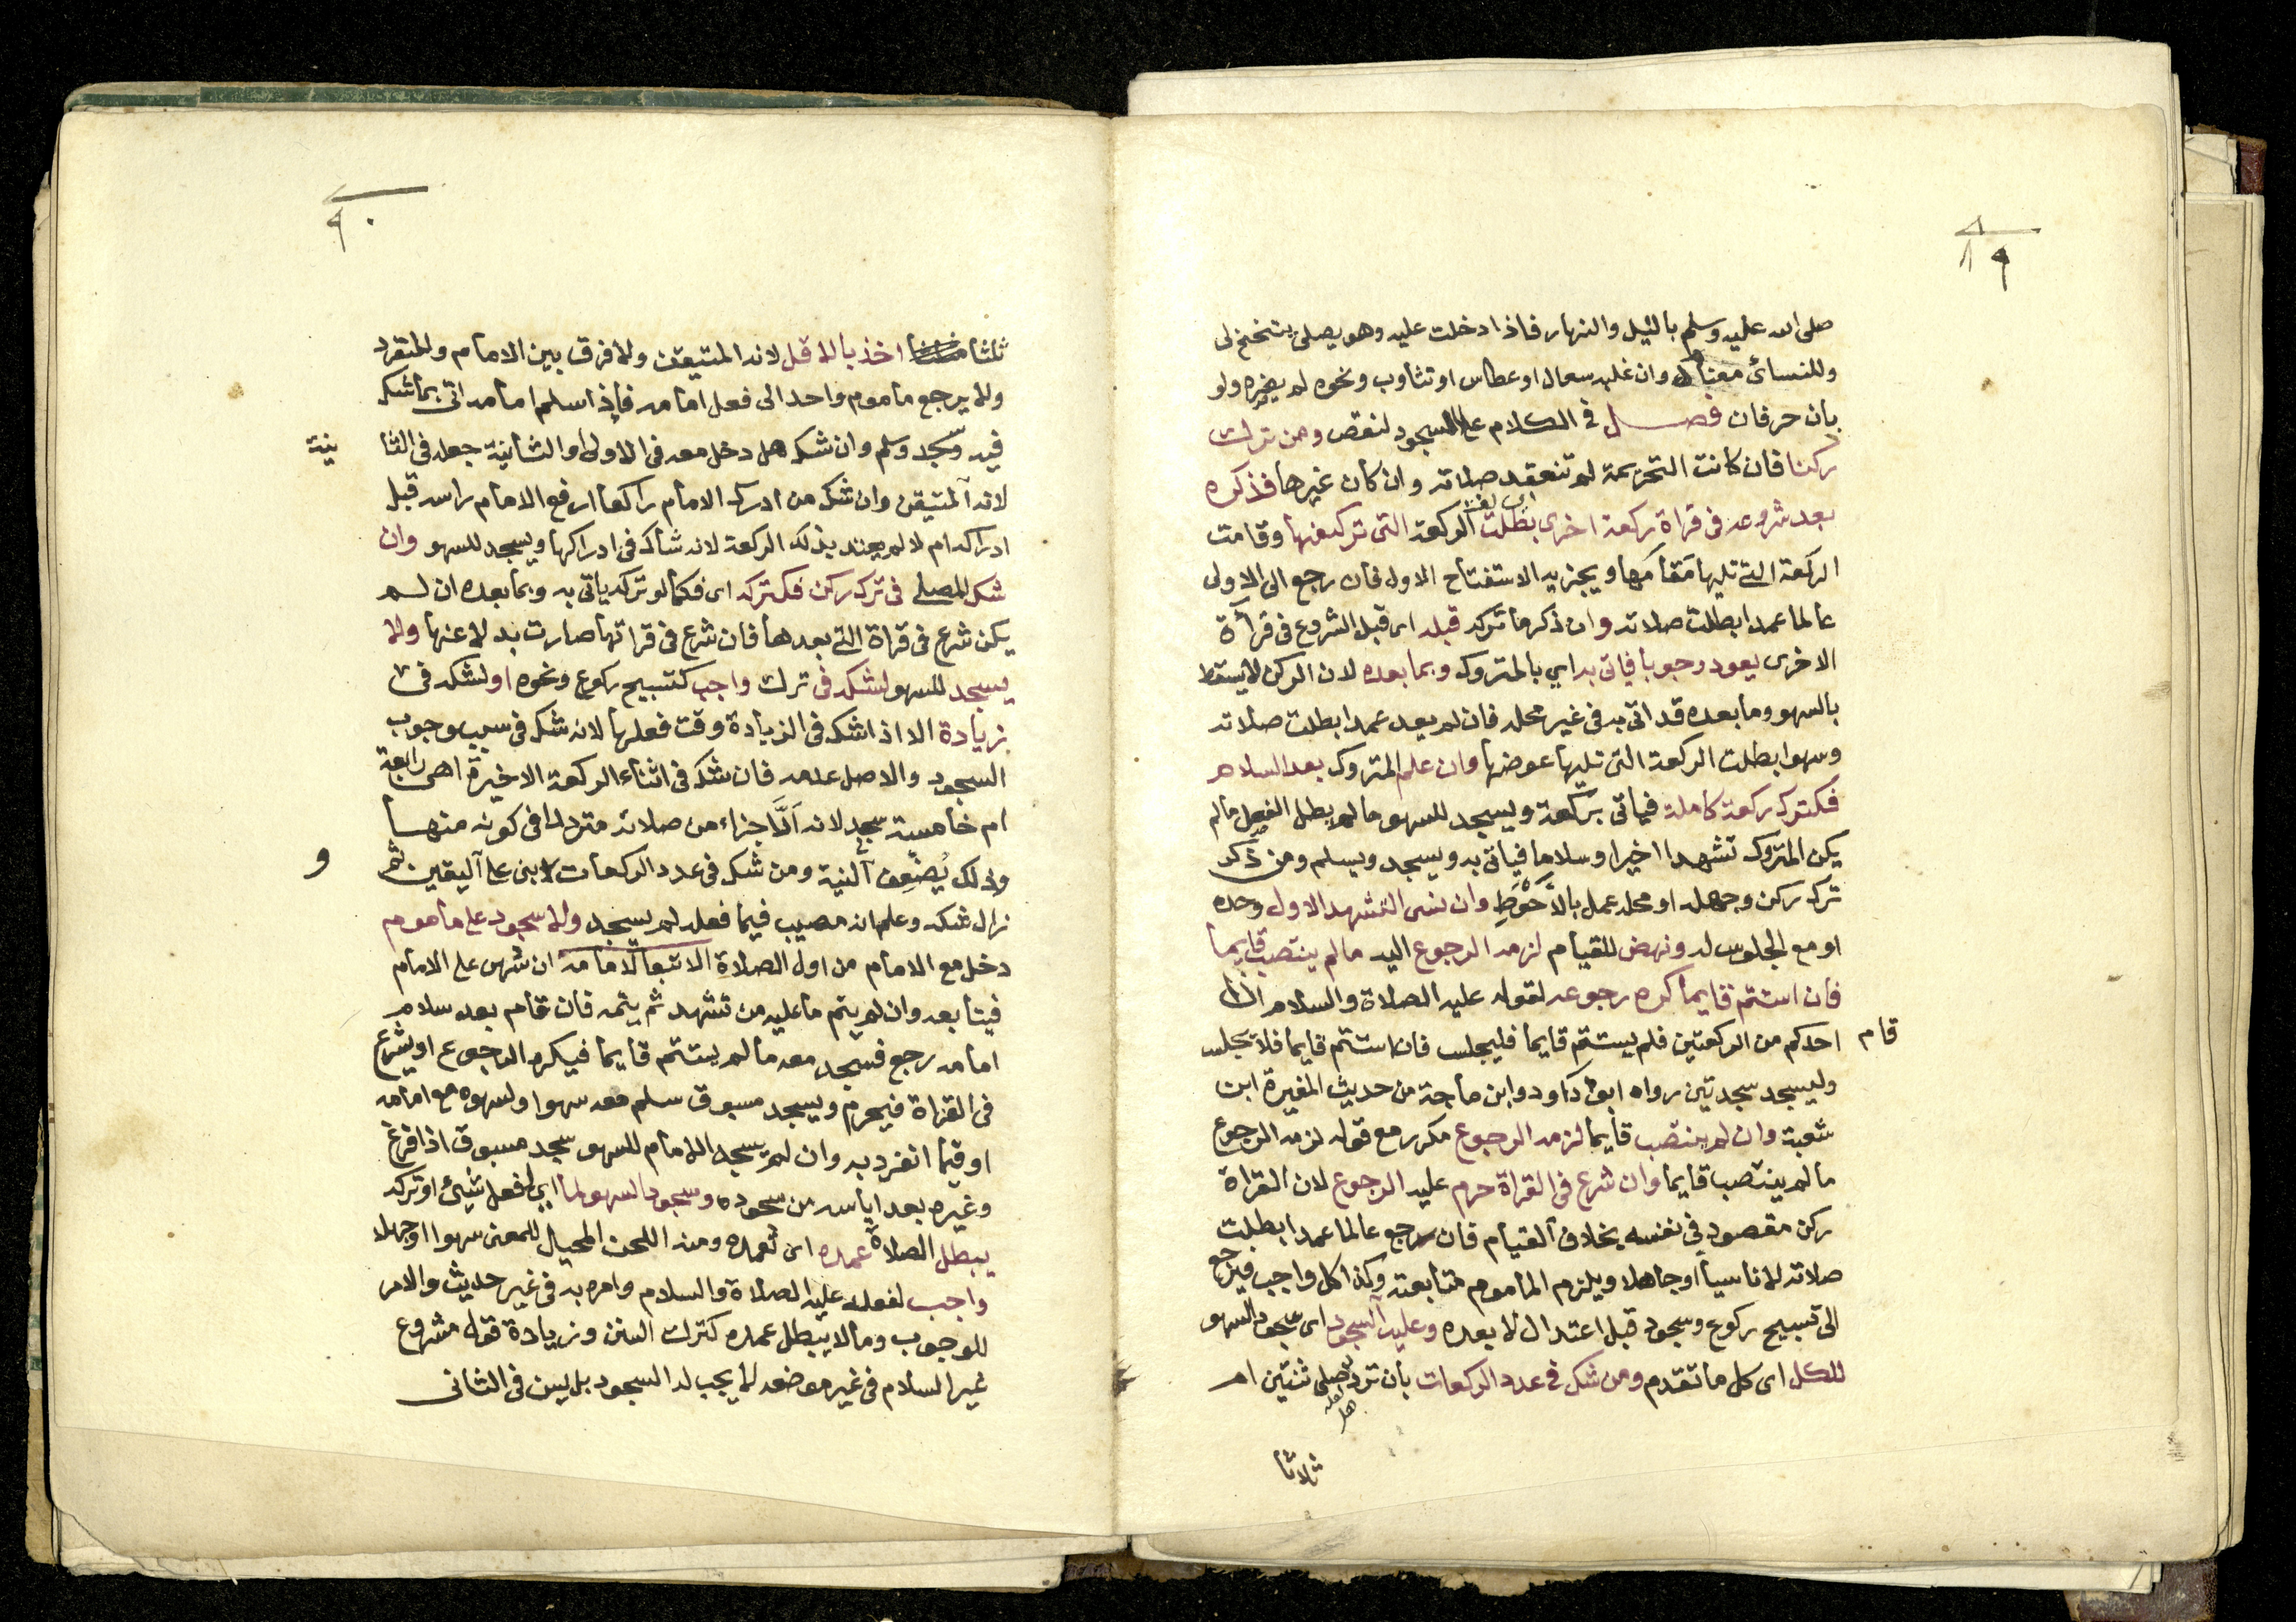 ٨٩
صلى الله عليه وسلم بالليل والنهار فاذا دخلت عليه وهو يصلي يتنحنح لي
وللنسائي معناه وان غلبه سعال او عطاس او تثاوب ونحوه لم يضره ولو
بان حرفان فصل في الكلام على السجود لنقص ومن ترك
ركنا فان كانت التحريمة لم تنعقد صلاته وان كان غيرها فذكره
بعد شروعه في قراة ركعة اخرى بطلت الركعة التي تركه منها وقامت
الركعة التي تليها مَقامَها ويجزيه الاستفتاح الاول فان رجع الى الاولى
عالما عمدا بطلت صلاته وان ذكر ما تركه قبله اي قبل الشروع في قرآة
الاخرى يعود وجوبا فياتي به اي بالمتروك وبما بعده لان الركن لا يسقط
بالسهو وما بعده قد اتى به في غير محله فان لم يعد عمدا بطلت صلاته
وسهوا بطلت الركعة التي تليها عوضها وان علم المتروك بعد السلام
فكترك ركعة كاملة فياتي بركعة ويسجد للسهو ما لم يطل الفصل ما لم
يكن المتروك تشهدا اخيرا او سلاما فياتي به ويسجد ويسلم ومن ذكر
ترك ركن وجهله او محله عمل بالاَحْوَطِ وان نسى التشهد الاول وحده
او مع الجلوس له ونهض للقيام لزمه الرجوع اليه ما لم ينتصب قايما
فان استتم قايما كره رجوعه لقوله عليه الصلاة والسلام اذا
قام احدكم من الركعتين فلم يستتم قايما فليجلس فان استتم قايما فلا يجلس
وليسجد سجدتين رواه ابو داود وابن ماجة من حديث المغيرة ابن
شعبة وان لم ينتصب قايما لزمه الرجوع مكرر مع قوله لزمه الرجوع
ما لم ينتصب قايما وان شرع في القراة حرم عليه الرجوع لان القراة
ركن مقصود في نفسه بخلاف القيام فان رجع عالما عمدا بطلت
صلاته لا ناسيا او جاهلا ويلزم الماموم متابعته وكذا كل واجب فيرجع
الى تسبيح ركوع وسجود قبل اعتدال لا بعده وعليه السجود اي سجود السهو
للكل اي كل ما تقدم ومن شك في عدد الركعات بان تردد صلى ثنتين ام
لعله هل
ثلاثا
٩٠
ثلثا اخذ بالاقل لانه المتيقن ولا فرق بين الامام والمنفرد
ولا يرجع ماموم واحد الى فعل امامه فاذا سلم امامه اتى بما شك
فيه وسجد وسلم وان شك هل دخل معه في الاولى او الثانية جعله في الثا نية
لانه المتيقن وان شك من ادرك الامام راكعا ارفع الامام راسه قبل
ادراكه ام لا لم يعتد بتلك الركعة لانه شاك في ادراكها ويسجد للسهو وان
شك المصلي في ترك ركن فكتركه اي فكما لو تركه ياتي به وبما بعده ان لم
يكن شرع في قراة التي بعدها فان شرع في قراتها صارت بدلا عنها ولا
يسجد للسهو لشكه في ترك واجب كتسبيح ركوع ونحوه او لشكه في
زيادة الا اذا شك في الزيادة وقت فعلها لانه شك في سبب وجوب
السجود والاصل عدمه فان شك في اثناء الركعة الاخيرة اهي رابعة
ام خامسة سجد لانه ادَّا جزاء من صلاته مترددا في كونه منها
وذلك يُضْعِف النية ومن شك في عدد الركعات وبنى على اليقين ثم
زال شكه وعلم انه مصيب فيما فعله لم يسجد ولا سجود على ماموم
دخل مع الامام من اول الصلاة الا تبعا لامامه ان سهى على الامام
فيتابعه وان لم يتم ما عليه من تشهد ثم يتمه فان قام بعد سلام
امامه رجع فسجد معه ما لم يستتم قايما فيكره الرجوع او يشرع
في القراة فيحرم ويسجد مسبوق سلم معه سهوا ولسهوه مع امامه
او فيما انفرد به وان لم يسجد الامام للسهو سجد مسبوق اذا فرغ
وغيره بعد اياسه من سجوده وسجود السهو لما اي لفعل شيئ او تركه
يبطل الصلاة عمده اي تعمده ومنه اللحن المحيل للمعنى سهوا او جهلا
واجب لفعله عليه الصلاة والسلام وامره به في غير حديث والامر
للوجوب وما لا يبطل عمده كترك السنن وزيادة قول مشروع
غير السلام في غير موضعه لا يجب له السجود بل يسن في الثاني